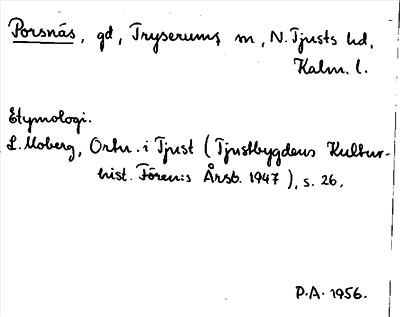 Porsnäs, gd, Tryserums sn, N. Tjusts hd,
Kalm. l.
Etymologi.
L. Moberg, Ortn. i Tjust (Tjustbygdens Kultur-
hist. Fören:s Årsb. 1947), s. 26.
P.A. 1956.